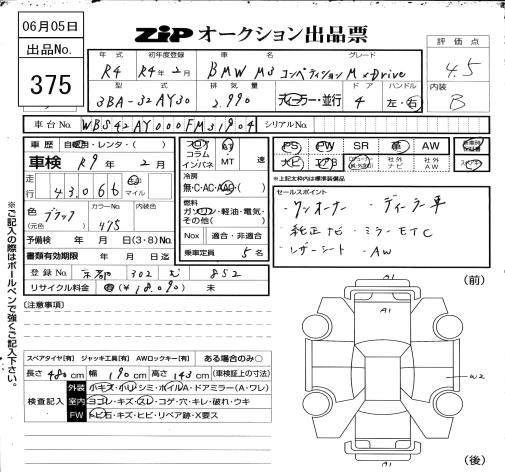 06月05日
出品No.
375
ZIP オークション出品票
年式 初年度登録 車名 グレード
R4 R4年2月 BMW M3 コンペティションM xDrive
型式 排気量 ドア ハンドル
3BA-32AY30 2.990 ディーラー・並行 4 左・右
評価点
4.5
内装
B
車台No. WBS42AY000FM31904 シリアルNo.
車歴 自家用・レンタ・( )
車検 R9年2月
走行 43,066 km マイル
色 ブラック (元色) カラーNo. 475 内装色
予備検 年 月 日(3・8)No.
書類有効期限 年 月 日迄
登録No. 京都 302 む 852
リサイクル料金 有(¥18,090) 未
フロア コラム インパネ AT MT 速
冷房
無・C・AC・AAC
燃料
ガソリン・軽油・電気・その他( )
Nox 適合・非適合
乗車定員 5名
PS PW SR 革 AW 新車時保証書
ナビ エアB 社外ナビ 社外AW スマートキー
※上記太枠内は標準装備品
セールスポイント
・ワンオーナー ・ディーラー車
・純正ナビ ・ミラーETC
・レザーシート ・AW
※ご記入の際はボールペンで強くご記入下さい。
[注意事項]
スペアタイヤ[有] ジャッキ工具[有] AWロックキー[有] ある場合のみ○
長さ 480cm 幅 190cm 高さ 143cm (車検証上の寸法)
検査記入
外装 小キズ・小リ・シミ・ホイルA・ドアミラー(A・ワレ)
室内 ヨゴレ・キズ・スレ・コゲ・穴・キレ・破れ・ウキ
FW トビ石・キズ・ヒビ・リペア跡・X要ス
(前)
A1
A1
W2
A1
(後)